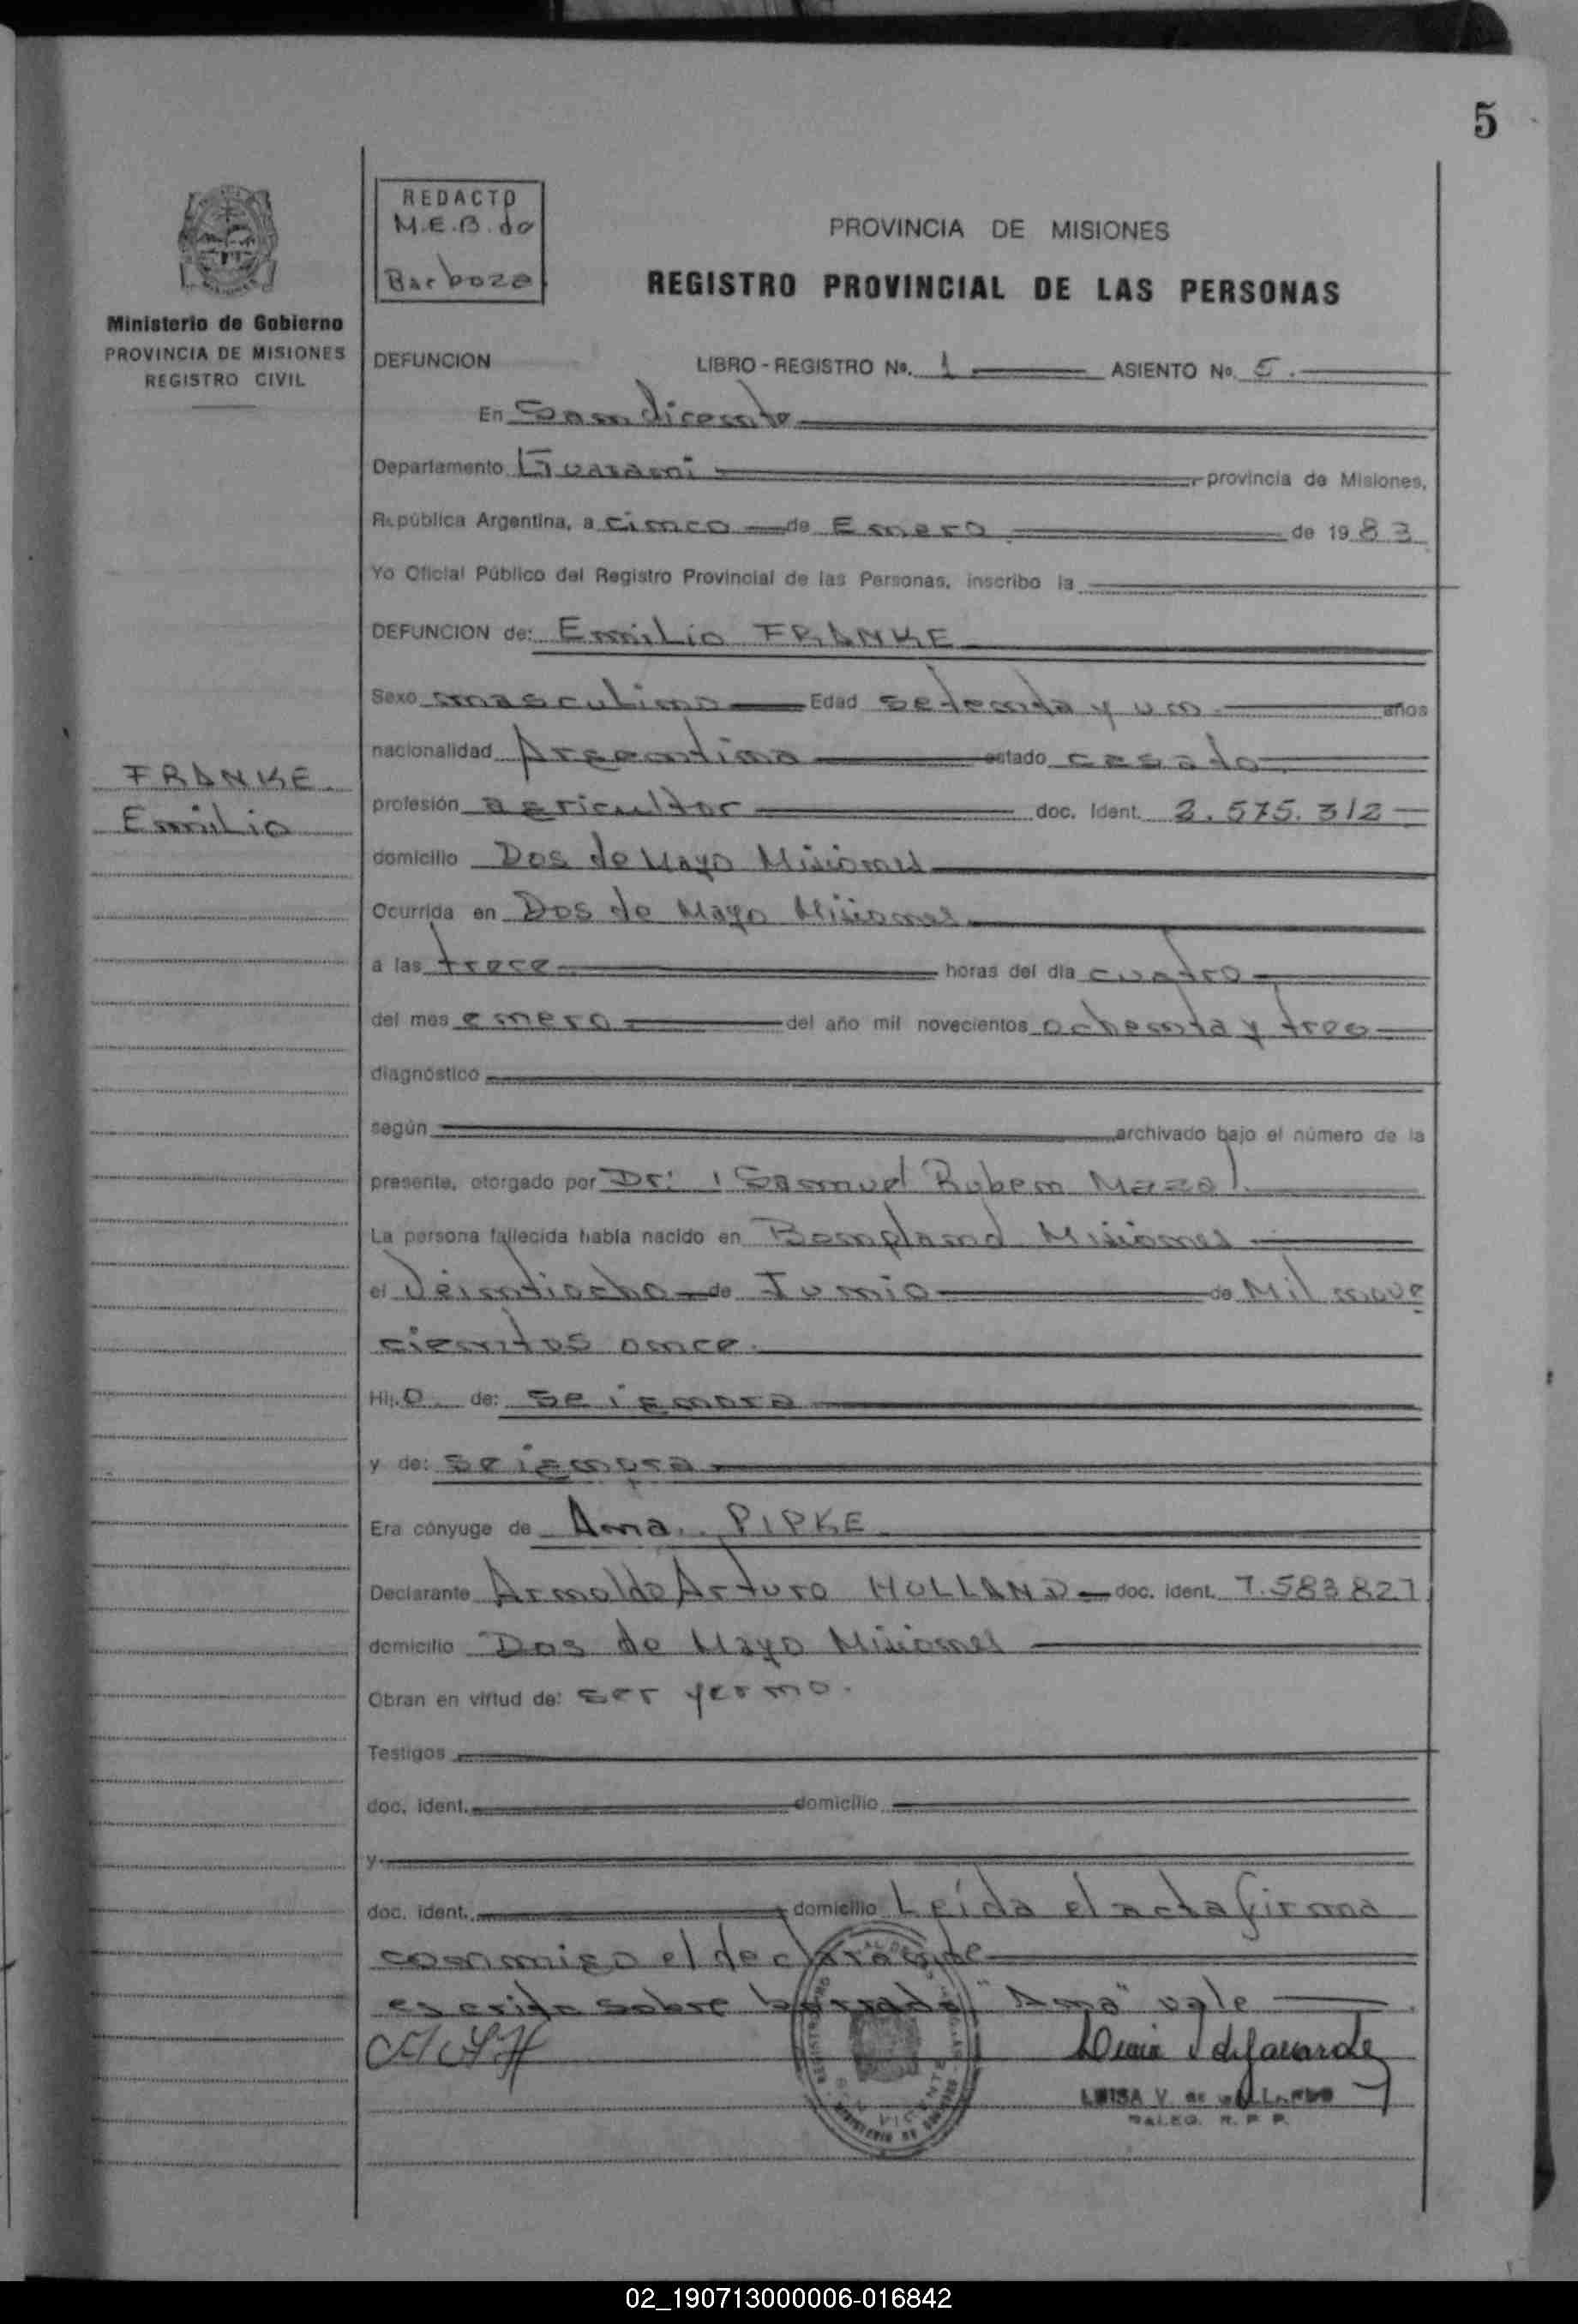 5
REDACTO
M.E.B. de
Barboza
PROVINCIA DE MISIONES
REGISTRO PROVINCIAL DE LAS PERSONAS
Ministerio de Gobierno
PROVINCIA DE MISIONES
REGISTRO CIVIL
DEFUNCION LIBRO - REGISTRO No. 1 ASIENTO No. 5.
En San Vicente
Departamento Guarani provincia de Misiones,
República Argentina, a cinco de Enero de 1983
Yo Oficial Público del Registro Provincial de las Personas, inscribo la
DEFUNCION de: Emilio FRANKE
Sexo masculino Edad setenta y un años
nacionalidad Argentina estado casado
FRANKE
Emilio
profesión agricultor doc. Ident. 2.575.312
domicilio Dos de Mayo Misiones
Ocurrida en Dos de Mayo Misiones
a las trece horas del día cuatro
del mes enero del año mil novecientos ochenta y tres
diagnóstico
según archivado bajo el número de la
presente, otorgado por Dr: Samuel Ruben Mazal
La persona fallecida había nacido en Bonpland Misiones
el Veintiocho de Junio de Mil nove
cientos once.
Hijo de: se ignora
y de: se ignora
Era cónyuge de Ana PIPKE
Declarante Arnoldo Arturo HOLLAND doc. ident. 7.583.827
domicilio Dos de Mayo Misiones
Obran en virtud de: ser yerno.
Testigos
doc. ident. domicilio
y
doc. ident. domicilio Leída el acta firma
conmigo el declarante
escrito sobre borrado "Ana" vale
SAN VICENTE
MINISTERIO DE GOBIERNO
LUISA V. de GALLARDO
R. P. P.
02_190713000006-016842